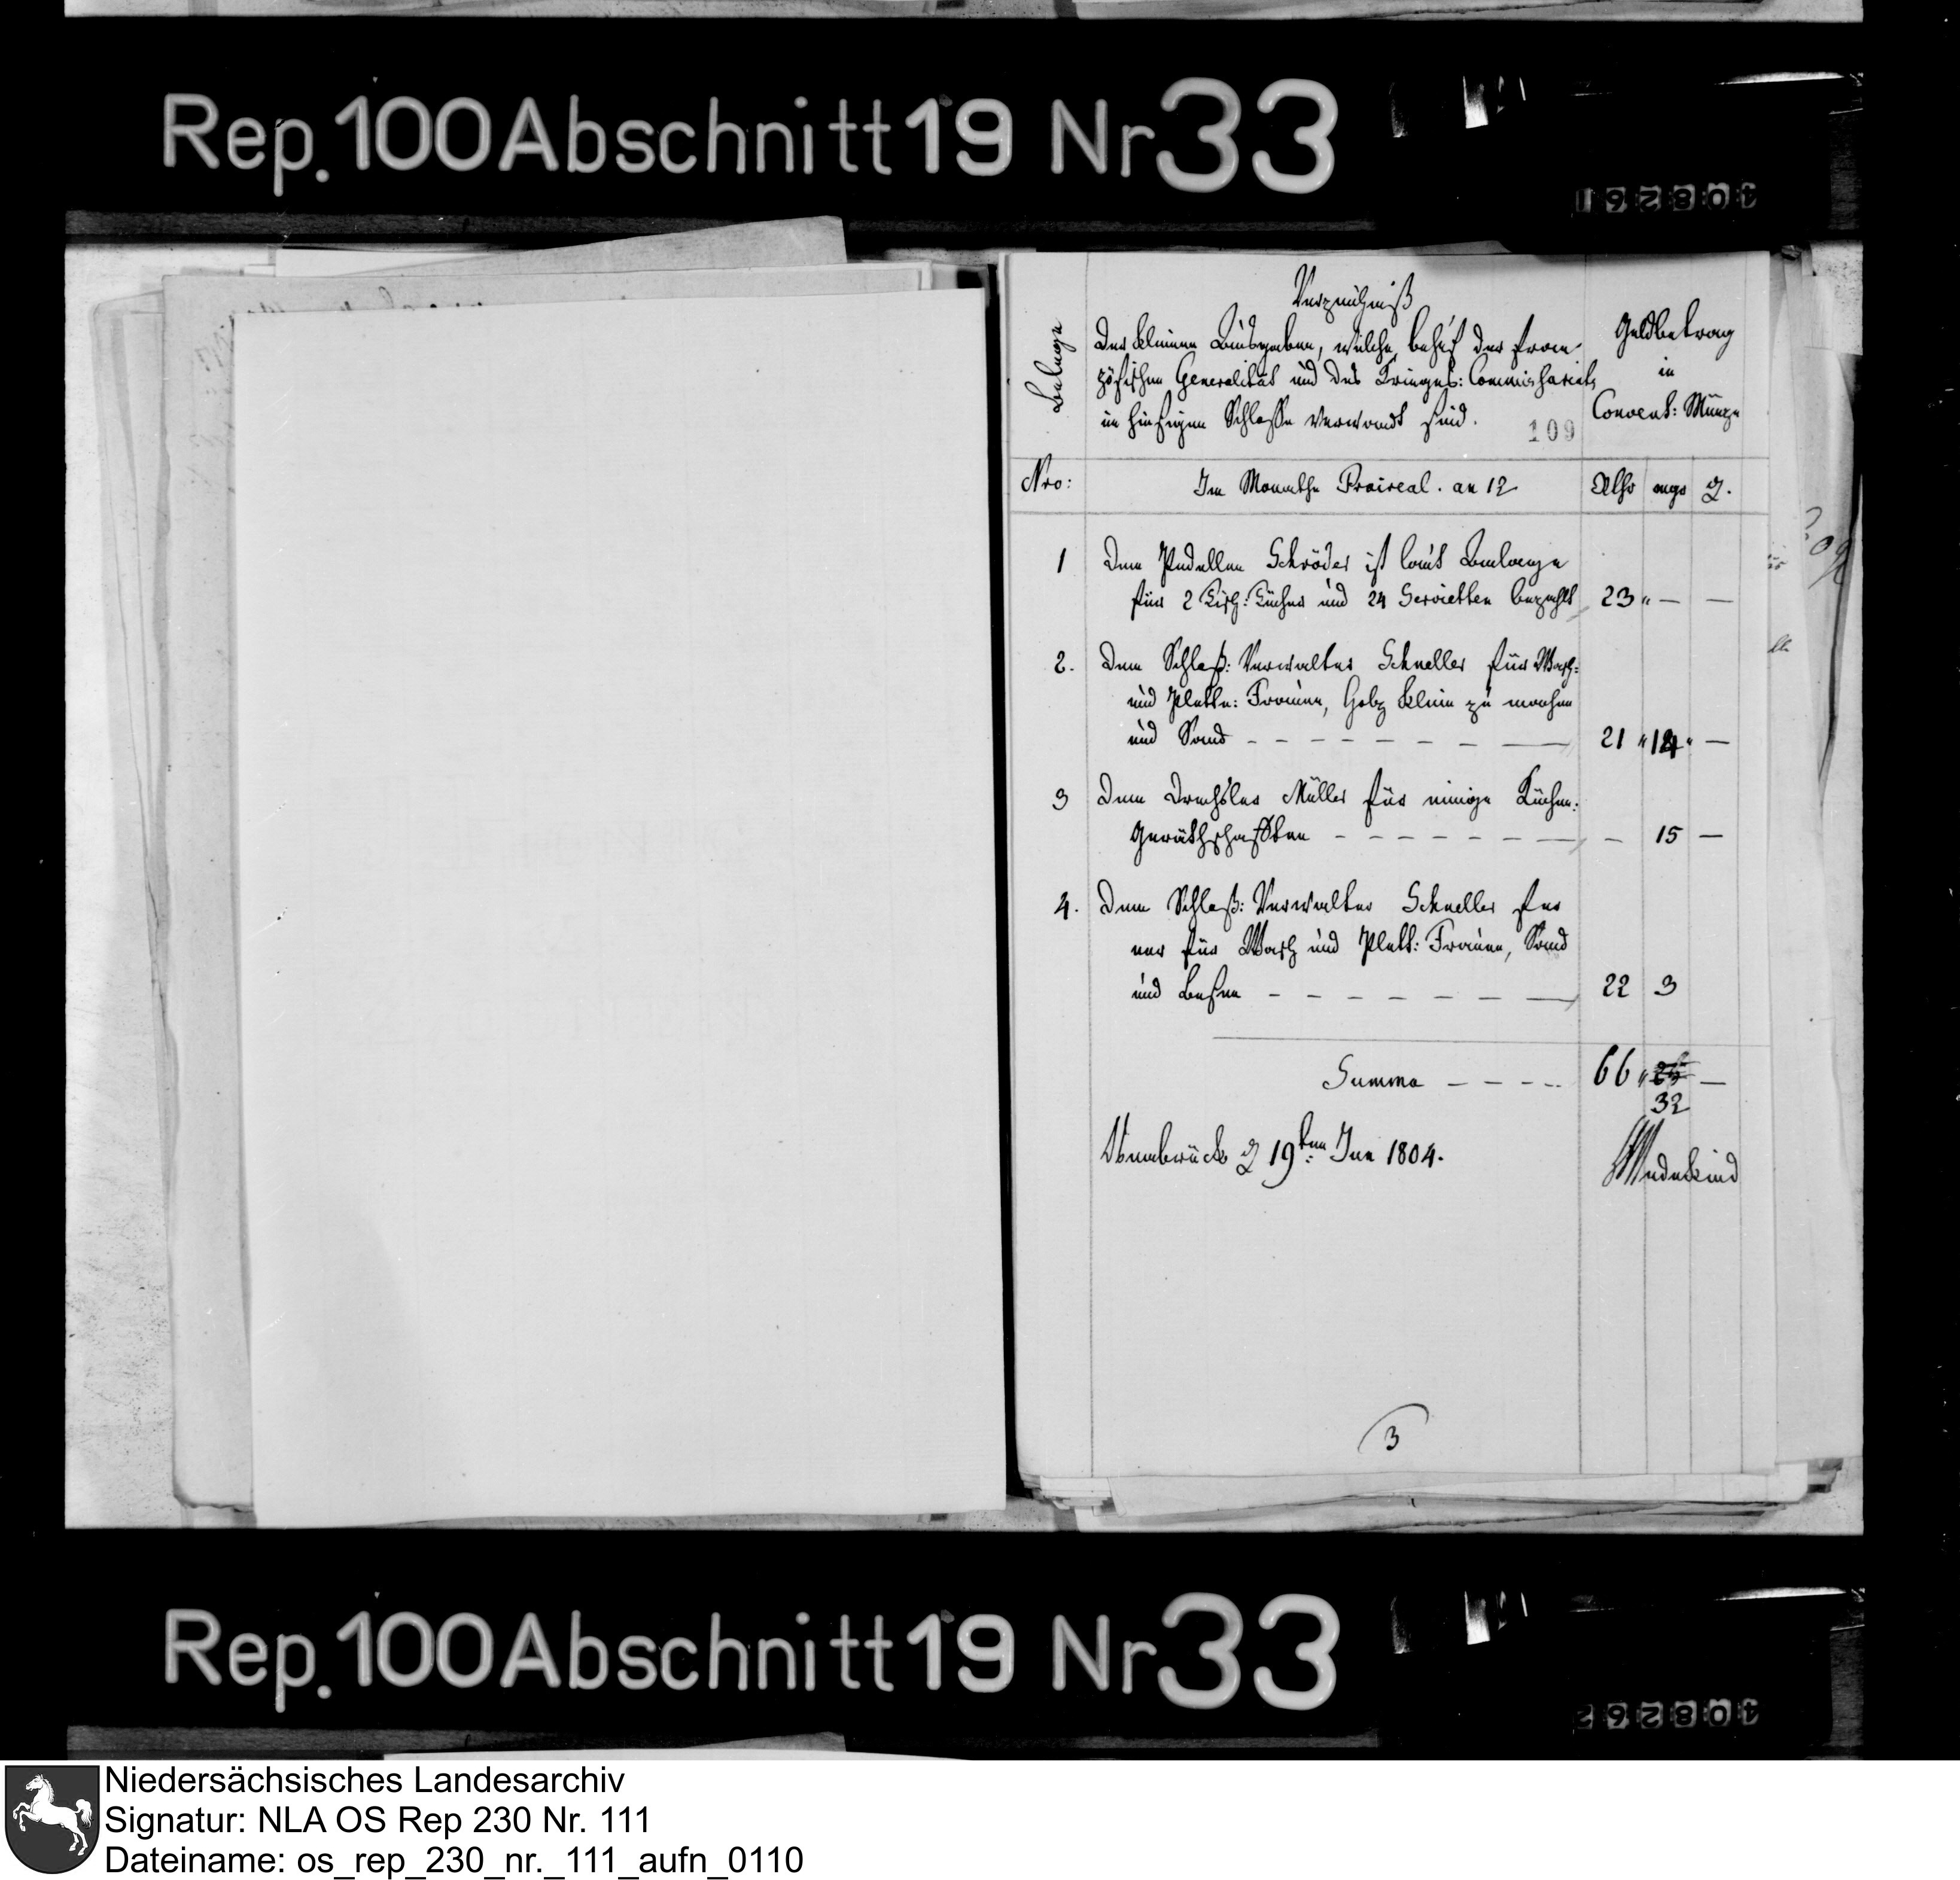 Rep. 100 Abschnitt 19 Nr 33
408261
Verzeichniß
Der kleinen Ausgaben, welche behuf der fran-
zösischen Generalität und des Krieges: Commissariats
im hiesigen Schlosse verwandt sind.
109
Belege
Geldbetrag
in
Convent: Münze
Nro:
Im Monathe Praireal. an 12
Rthr mgr d.
1 Dem Pedellen Schröder ist laut Anlage
für 2 Tisch: Tücher und 24 Servietten bezahlt 23 " — —
2. Dem Schloß: Verwalter Schneller für Wasch:
und Plette: Frauen, Holz klein zu machen
und Sand - - - - - - - — 21 " 14 " —
3 Dem Drechsler Müller für einige Küchen:
Geräthschaften - - - - - - — - 15 —
4. Dem Schloß: Verwalter Schneller fer
ner für Wasch und Plett: Frauen, Sand
und Besen - - - - - - - — 22 3
Summa - - - - 66 " —
32
Osnabrück d 19ten: Jun 1804.
Wedekind
3
Rep. 100 Abschnitt 19 Nr 33
408262
Niedersächsisches Landesarchiv
Signatur: NLA OS Rep 230 Nr. 111
Dateiname: os_rep_230_nr._111_aufn_0110